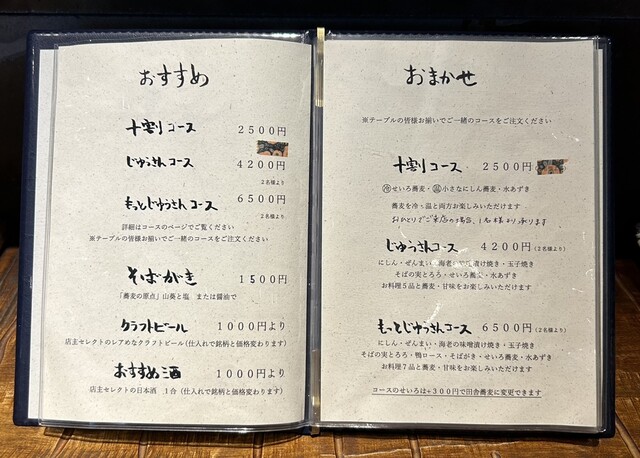 おすすめ
十割コース 2500円
じゅうさんコース 4200円
2名様より
もっとじゅうさんコース 6500円
2名様より
詳細はコースのページでご覧ください
※テーブルの皆様お揃いでご一緒のコースをご注文ください
そばがき 1500円
「蕎麦の原点」山葵と塩 または醤油で
クラフトビール 1000円より
店主セレクトのレアめなクラフトビール(仕入れで銘柄と価格変わります)
おすすめ酒 1000円より
店主セレクトの日本酒 1合(仕入れで銘柄と価格変わります)
おまかせ
※テーブルの皆様お揃いでご一緒のコースをご注文ください
十割コース 2500円
㊀せいろ蕎麦・㊀小さなにしん蕎麦・水あずき
蕎麦を冷・温と両方お楽しみいただけます
おひとりでご来店の場合、1名様より承ります
じゅうさんコース 4200円(2名様より)
にしん・ぜんまい・海老の味噌漬け焼き・玉子焼き
そばの実とろろ・せいろ蕎麦・水あずき
お料理5品と蕎麦・甘味をお楽しみいただけます
もっとじゅうさんコース 6500円(2名様より)
にしん・ぜんまい・海老の味噌漬け焼き・玉子焼き
そばの実とろろ・鴨ロース・そばがき・せいろ蕎麦・水あずき
お料理7品と蕎麦・甘味をお楽しみいただけます
コースのせいろは+300円で田舎蕎麦に変更できます